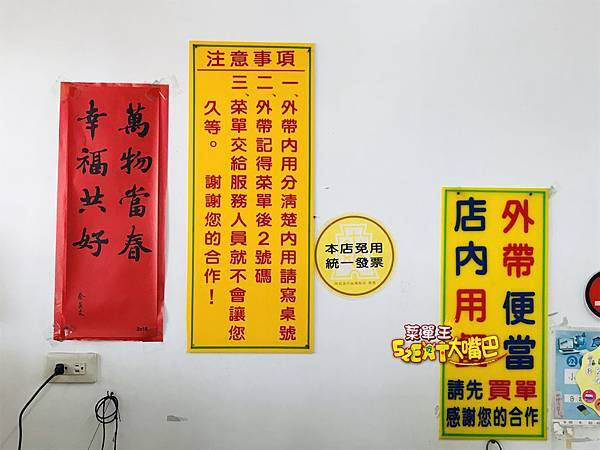 萬物當春
幸福共好
蔡英文
2016
注意事項
一、外帶內用分清楚內用請寫桌號
二、外帶記得菜單後2號碼
三、菜單交給服務人員就不會讓您
久等。 謝謝您的合作！
本店免用
統一發票
外帶便當
店內用
請先買單
感謝您的合作
菜單王
大嘴巴